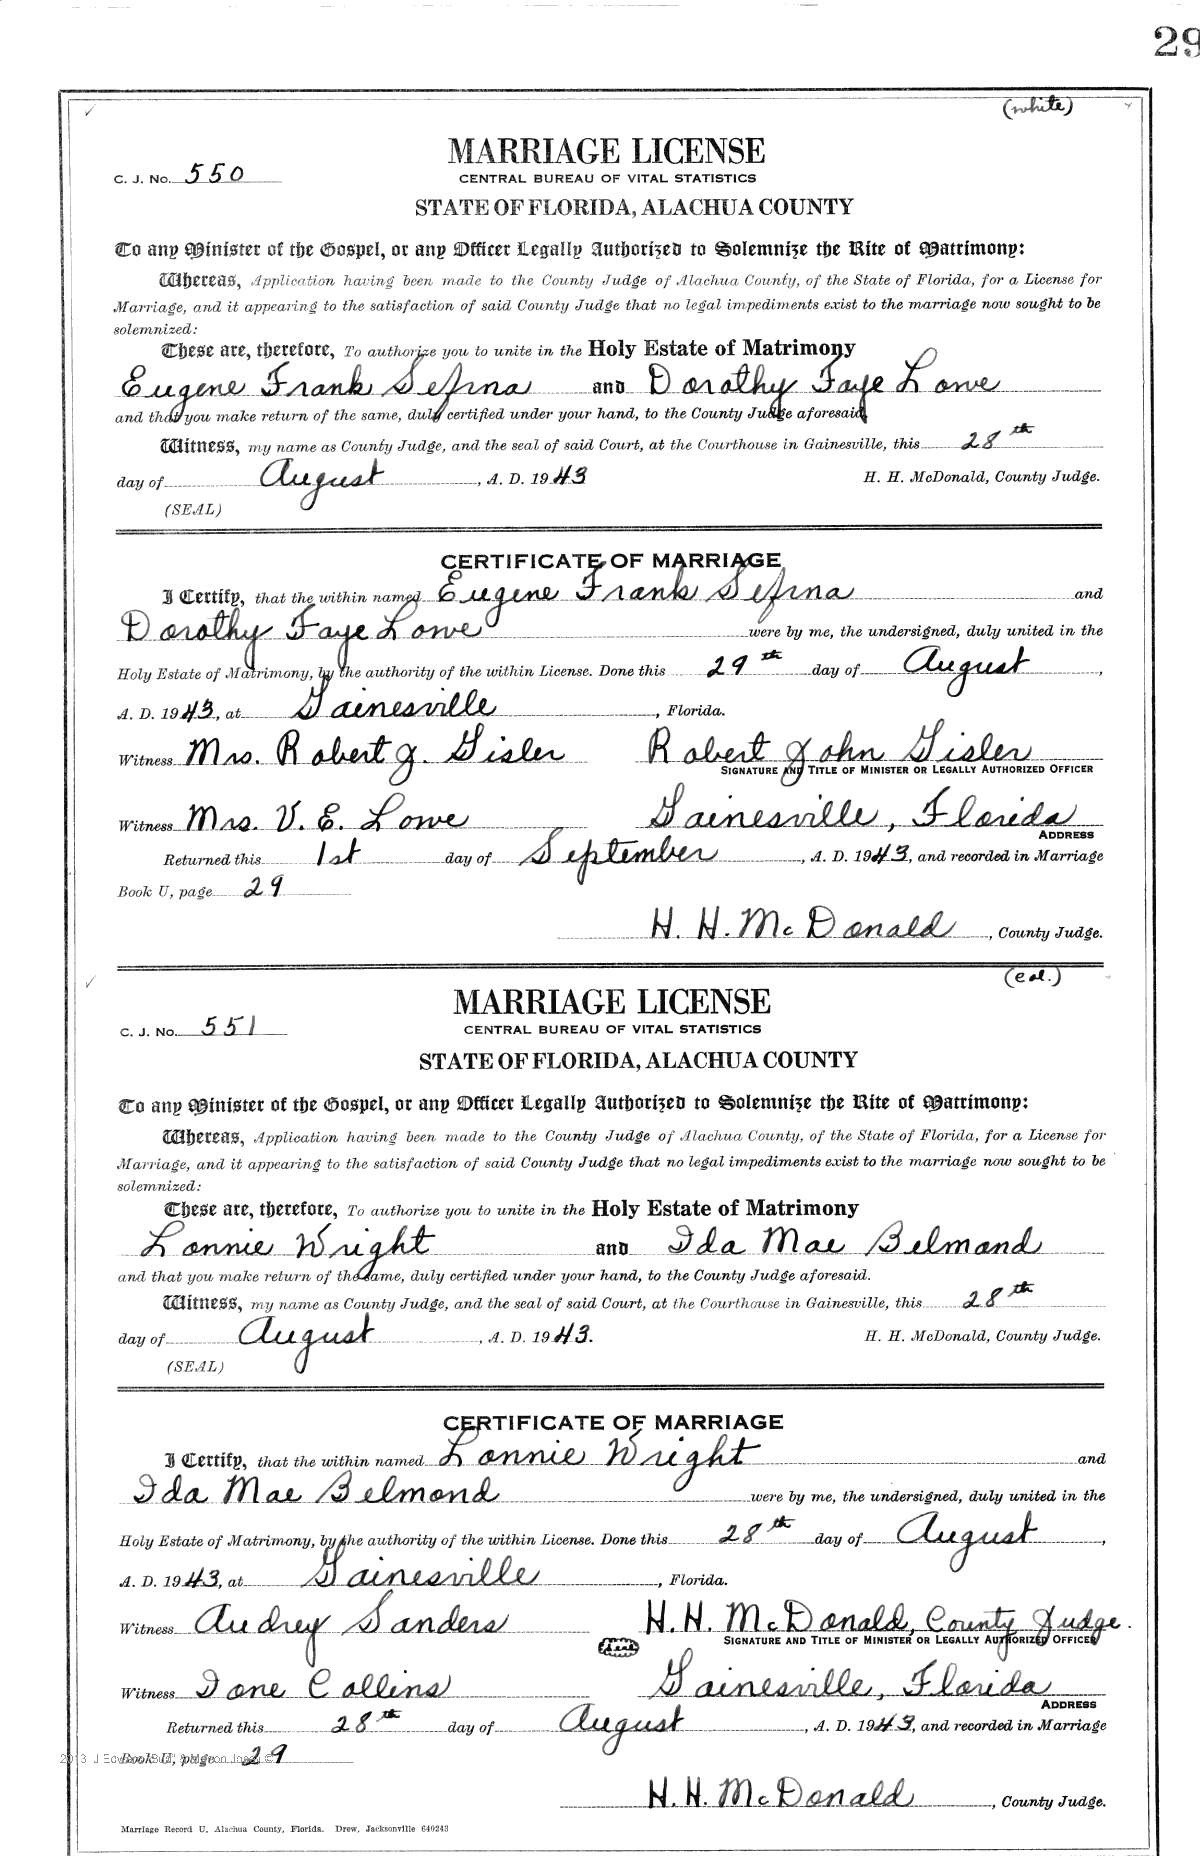 29
(white)
MARRIAGE LICENSE
C. J. No. 550
CENTRAL BUREAU OF VITAL STATISTICS
STATE OF FLORIDA, ALACHUA COUNTY
To any Minister of the Gospel, or any Officer Legally Authorized to Solemnize the Rite of Matrimony:
Whereas, Application having been made to the County Judge of Alachua County, of the State of Florida, for a License for
Marriage, and it appearing to the satisfaction of said County Judge that no legal impediments exist to the marriage now sought to be
solemnized:
These are, therefore, To authorize you to unite in the Holy Estate of Matrimony
Eugene Frank Sefrna and Dorothy Faye Lowe
and that you make return of the same, duly certified under your hand, to the County Judge aforesaid.
Witness, my name as County Judge, and the seal of said Court, at the Courthouse in Gainesville, this 28th
day of August, A. D. 1943 H. H. McDonald, County Judge.
(SEAL)
CERTIFICATE OF MARRIAGE
I Certify, that the within named Eugene Frank Sefrna and
Dorothy Faye Lowe were by me, the undersigned, duly united in the
Holy Estate of Matrimony, by the authority of the within License. Done this 29th day of August,
A. D. 1943, at Gainesville, Florida.
Witness Mrs. Robert J. Gisler Robert John Gisler
SIGNATURE AND TITLE OF MINISTER OR LEGALLY AUTHORIZED OFFICER
Witness Mrs. V. E. Lowe Gainesville, Florida
ADDRESS
Returned this 1st day of September, A. D. 1943, and recorded in Marriage
Book U, page 29
H. H. McDonald, County Judge.
(col.)
MARRIAGE LICENSE
C. J. No. 551
CENTRAL BUREAU OF VITAL STATISTICS
STATE OF FLORIDA, ALACHUA COUNTY
To any Minister of the Gospel, or any Officer Legally Authorized to Solemnize the Rite of Matrimony:
Whereas, Application having been made to the County Judge of Alachua County, of the State of Florida, for a License for
Marriage, and it appearing to the satisfaction of said County Judge that no legal impediments exist to the marriage now sought to be
solemnized:
These are, therefore, To authorize you to unite in the Holy Estate of Matrimony
Lonnie Wright and Ida Mae Belmond
and that you make return of the same, duly certified under your hand, to the County Judge aforesaid.
Witness, my name as County Judge, and the seal of said Court, at the Courthouse in Gainesville, this 28th
day of August, A. D. 1943. H. H. McDonald, County Judge.
(SEAL)
CERTIFICATE OF MARRIAGE
I Certify, that the within named Lonnie Wright and
Ida Mae Belmond were by me, the undersigned, duly united in the
Holy Estate of Matrimony, by the authority of the within License. Done this 28th day of August,
A. D. 1943, at Gainesville, Florida.
Witness Audrey Sanders H. H. McDonald, County Judge.
(Seal) SIGNATURE AND TITLE OF MINISTER OR LEGALLY AUTHORIZED OFFICER
Witness Ione Collins Gainesville, Florida
ADDRESS
Returned this 28th day of August, A. D. 1943, and recorded in Marriage
Book U, page 29
H. H. McDonald, County Judge.
Marriage Record U, Alachua County, Florida. Drew, Jacksonville 640243